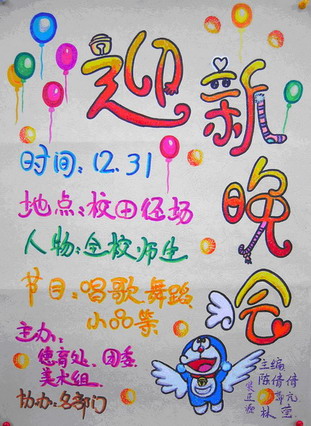 迎新晚会
时间:12.31
地点:校田径场
人物:全校师生
节目:唱歌 舞蹈
小品等
主办:
德育处、团委
美术组
协办:各部门
主编
陈倩倩